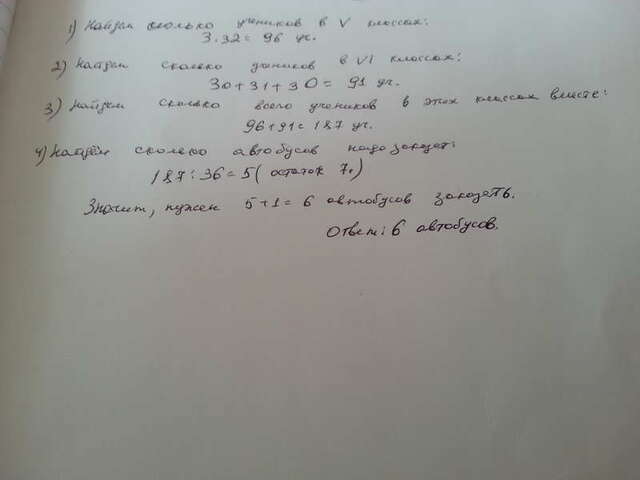 1) Найдем сколько учеников в V классах:
3·32=96 уч.
2) Найдем сколько учеников в VI классах:
30+31+30=91 уч.
3) Найдем сколько всего учеников в этих классах вместе:
96+91=187 уч.
4) Найдём сколько автобусов надо заказать:
187:36=5( остаток 7.)
Значит, нужен 5+1=6 автобусов заказать.
Ответ: 6 автобусов.